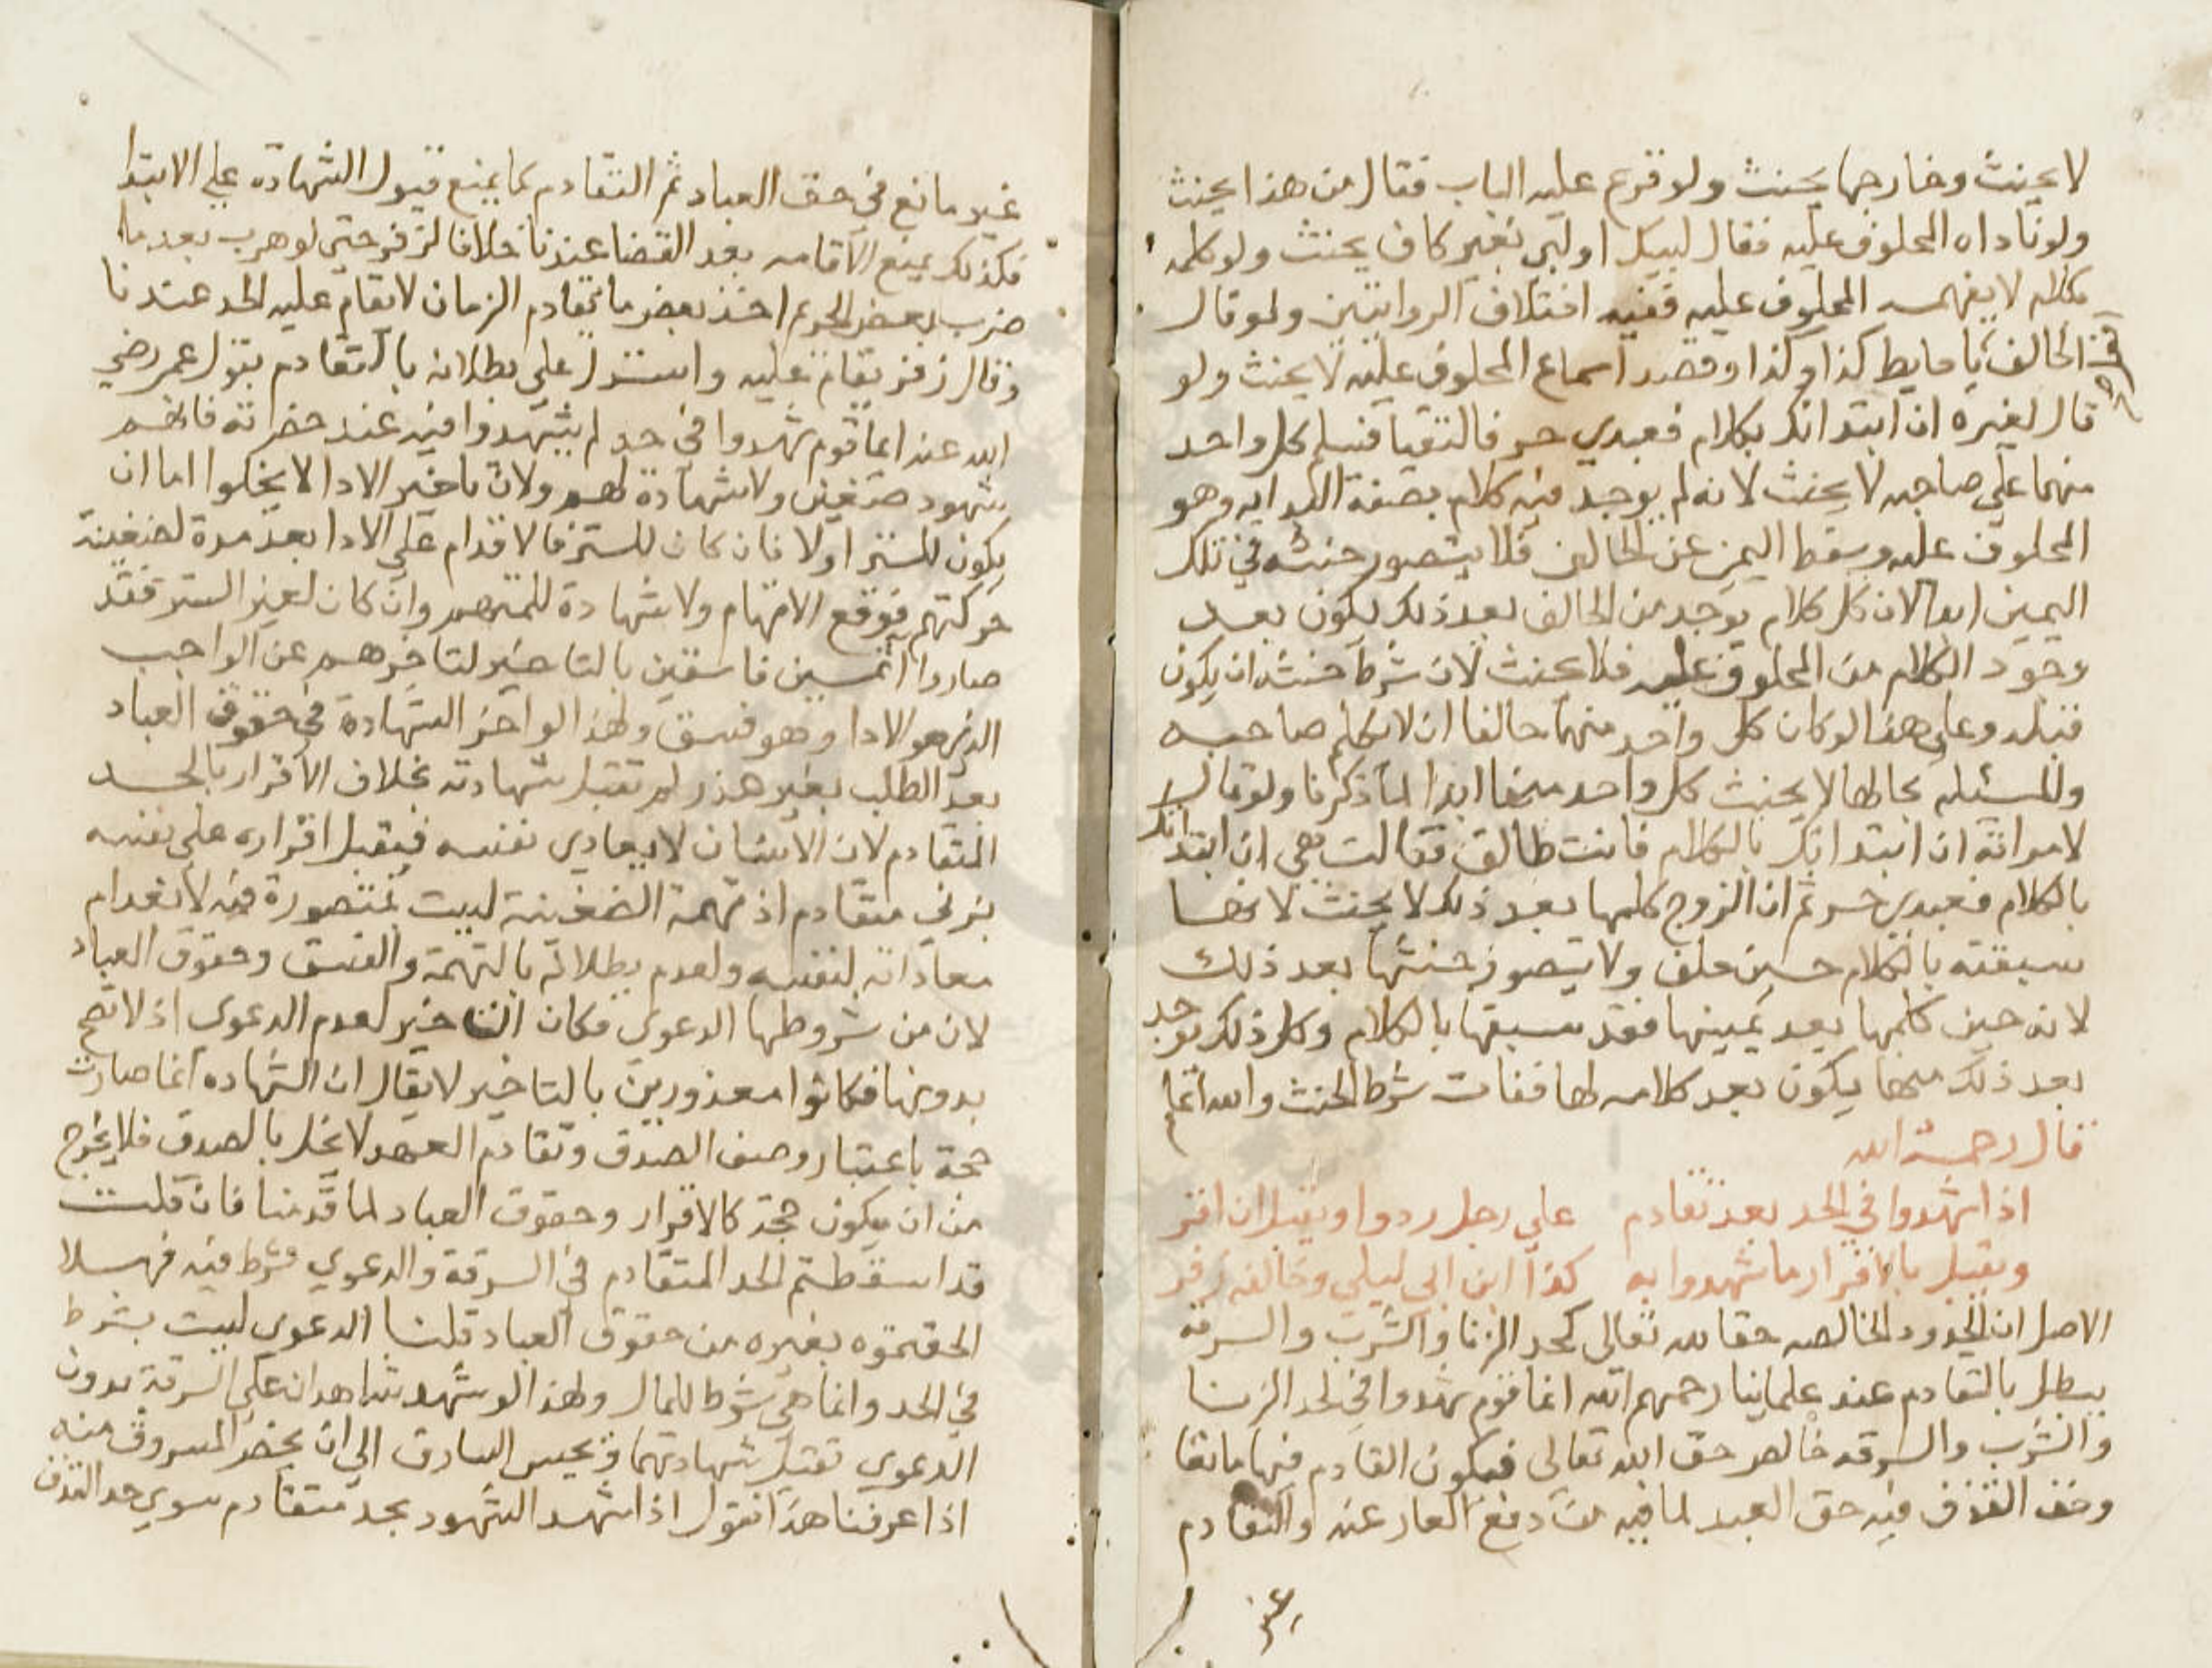 لا يحنث وخارجها يحنث ولو قرع عليه الباب فقال من هذا يحنث
ولو ناداه المحلوف عليه فقال لبيك او لبى بغير كاف يحنث ولو كلمه
بكلام لا يفهمه المحلوف عليه ففيه اختلاف الروايتين ولو قال
الحالف يا حايط كذا وكذا وقصد اسماع المحلوف عليه لا يحنث ولو
قال لغيره ان ابتداتك بكلام فعبدي حر فالتقيا فسلم كل واحد
منهما على صاحبه لا يحنث لانه لم يوجد منه كلام بصفة البدايه وهو
المحلوف عليه وسقط اليمين عن الحالف فلا يتصور حنثه في تلك
اليمين ابدا لان كل كلام يوجد من الحالف بعد ذلك يكون بعد
وجود الكلام من المحلوف عليه فلا يحنث لان شرط حنثه ان يكون
قبله وعلى هذا لو كان كل واحد منهما حالفا ان لا يكلم صاحبه
والمسئله بحالها لا يحنث كل واحد منهما ابدا لما ذكرنا ولو قال
لامراته ان ابتداتك بالكلام فانت طالق فقالت هي ان ابتداتك
بالكلام فعبدي حر ثم ان الزوج كلمها بعد ذلك لا يحنث لانها
سبقته بالكلام حين حلف ولا يتصور حنثها بعد ذلك
لانه حين كلمها بعد يمينها فقد سبقها بالكلام وكل ذلك يوجد
بعد ذلك منها يكون بعد كلامه لها ففات شرط الحنث والله اعلم
قال رحمه الله
اذا شهدوا في الحد بعد تقادم على رجل ردوا ويقبل ان اقر
ويقبل بالاقرار ما شهدوا به كذا ابن ابي ليلى وخالف زفر
الاصل ان الحدود الخالصه حقا لله تعالى كحد الزنا والشرب والسرقة
يبطل بالتقادم عند علماينا رحمهم الله ايما قوم شهدوا في لحد الزنا
والشرب والسرقه خالص حق الله تعالى فيكون التقادم فيها مانعا
وحد القذف فيه حق العبد لما فيه من دفع العار عنه والتقادم
غير
غير مانع في حق العباد ثم التقادم كما يمنع قبول الشهادة على الابتدا
فكذلك يمنع الاقامه بعد القضا عندنا خلافا لزفر حتى لو هرب بعد ما
ضرب بعض الحد ثم اخذ بعد ما تقادم الزمان لا يقام عليه الحد عندنا
وقال زفر يقام عليه واستدل على بطلانه بالتقادم بقول عمر رضي
الله عنه ايما قوم شهدوا في حد لم يشهدوا فيه عند حضرته فانهم
شهود ضغن ولا شهادة لهم ولان تاخير الادا لا يخلوا اما ان
يكون للستر اولا فان كان للستر فالاقدام على الادا بعد مدة لضغينة
حركتهم فوقع الاتهام ولا شهادة للمتهم وان كان لغير الستر فقد
صاروا اثمين فاسقين بالتاخير لتاخرهم عن الواجب
الذي هو الادا وهو فسق ولهذا لو اخر الشهادة في حقوق العباد
بعد الطلب بغير عذر لم تقبل شهادته بخلاف الاقرار بالحد
المتقادم لان الانسان لا يعادي نفسه فيقبل اقراره على نفسه
بزنى متقادم اذ تهمة الضغينة ليست بمتصورة فيه لانعدام
معاداته لنفسه ولعدم بطلانه بالتهمة والفسق وحقوق العباد
لان من شروطها الدعوى فكان التاخير لعدم الدعوى اذ لا تصح
بدونها فكانوا معذورين بالتاخير لا يقال ان الشهاده انما صارت
حجة باعتبار وصف الصدق وتقادم العهد لا يخل بالصدق فلا يخرج
من ان يكون حجة كالاقرار وحقوق العباد لما قدمنا فان قلت
قد اسقطتم الحد المتقادم في السرقة والدعوى شرط فيه فهلا
الحقتموه بغيره من حقوق العباد قلنا الدعوى ليست بشرط
في الحد وانما هي شرط للمال ولهذا لو شهد شاهدان على السرقة بدون
الدعوى تقبل شهادتهما ويحبس السارق الى ان يحضر المسروق منه
اذا عرفنا هذا نقول اذا شهد الشهود بحد متقادم سوى حد القذف